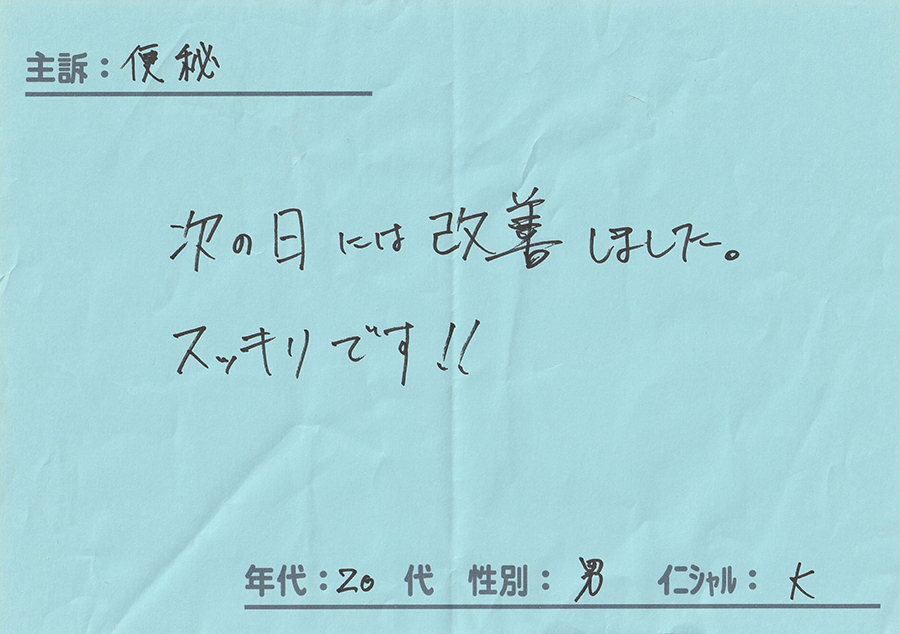 主訴：便秘
次の日には改善しました。
スッキリです!!
年代：20代 性別：男 イニシャル：K